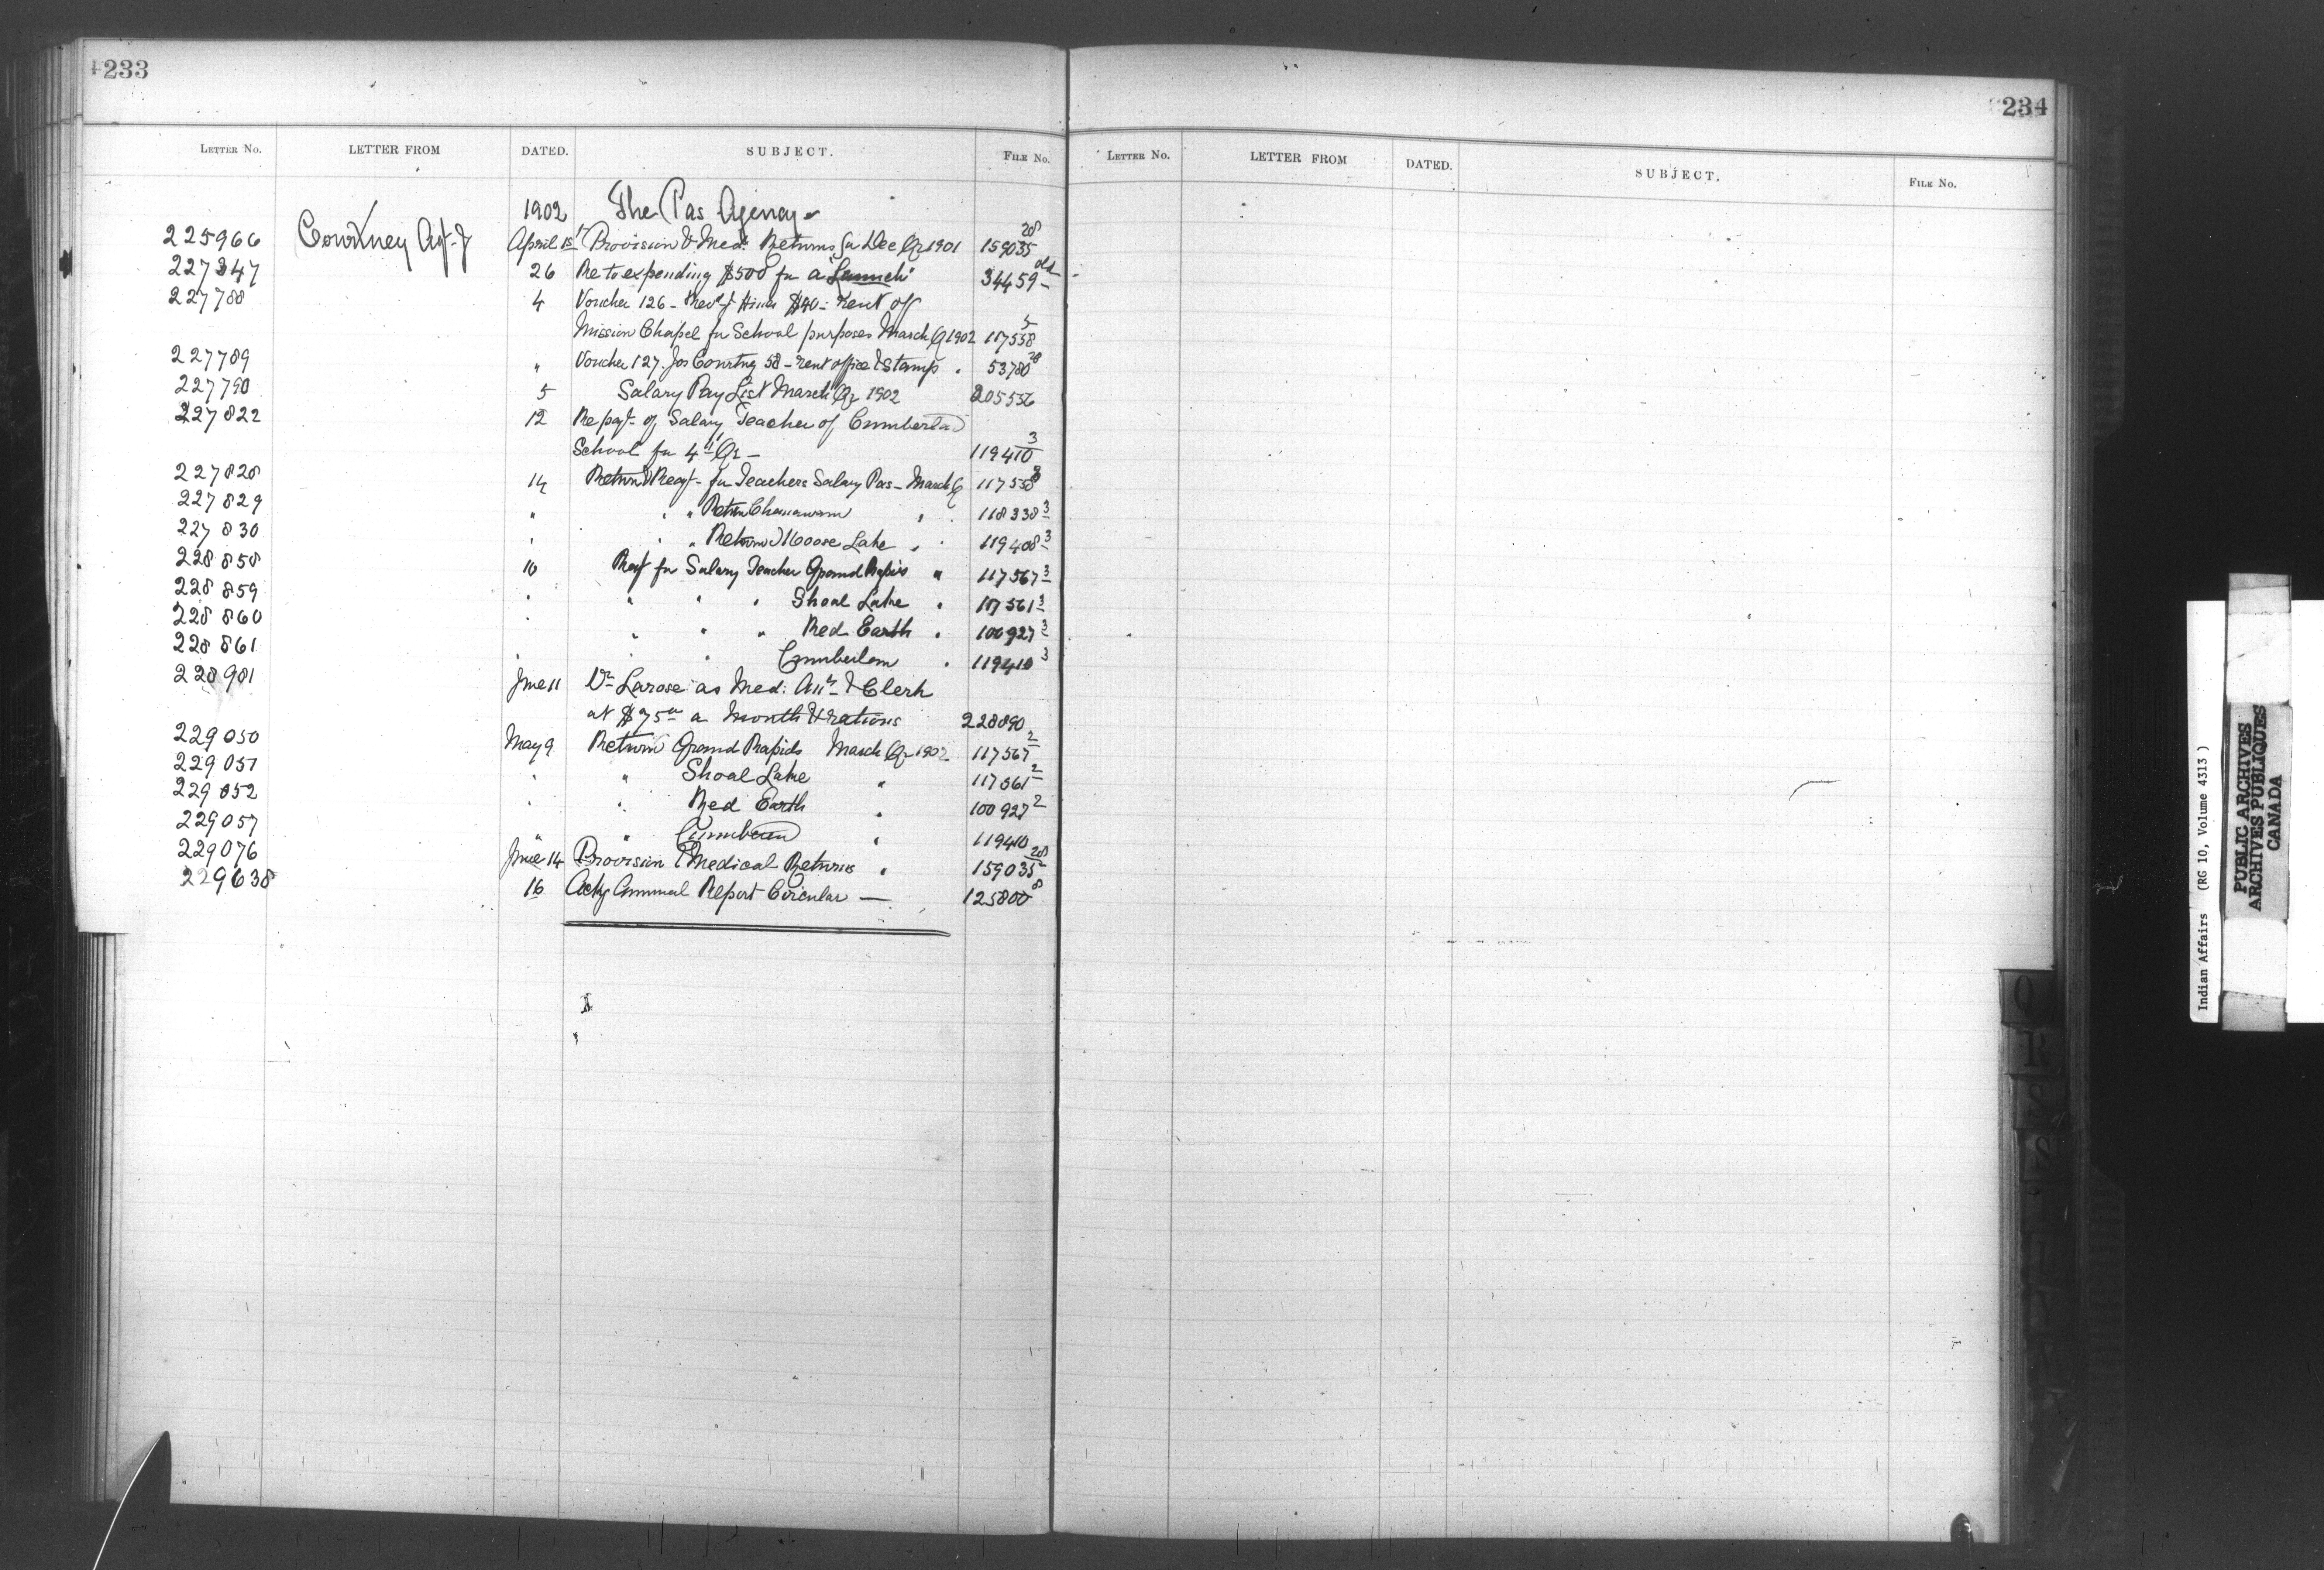 233
LETTER NO. LETTER FROM DATED. SUBJECT. FILE NO.
1902 The Pas Agency
225966 Courtney Agt. J April 15 Provision & Med. Returns fr Dec Qr 1901 159035 28
227347 26 Re to expending $500 for a "Launch" 34459 old
227788 4 Voucher 126 - Revd J Hines $40 - Rent of
Mission Chapel for School purposes March Q 1902 117558
227789 " Voucher 127. Jos Courtney 58 - rent office & Stamp " 53780 28
227790 5 Salary Pay List March Qr 1902 205556
227822 12 Re payt. of Salary Teacher of Cumberland
School for 4th Qr - 119410 3
227828 14 Return & Reqt. for Teachers Salary Pas - March Q 117558
227829 " " " Return Chemawawin " 118338 3
227830 " " " Return Moose Lake " 119408 3
228858 10 Reqt for Salary Teacher Grand Rapids " 117567 3
228859 " " " " Shoal Lake " 117561 3
228860 " " " " Red Earth " 100927 3
228861 " " " Cumberland " 119410 3
228981 June 11 Dr Larose as Med: Att & Clerk
at $75 00 a Month & rations 228890
229050 May 9 Return Grand Rapids March Qr 1902 117567 2
229051 " " Shoal Lake " 117561 2
229052 " " Red Earth " 100927 2
229057 " " Cumberland " 119410
229076 June 14 Provision & Medical Returns " 159035 28
229638 16 Ackg Annual Report Circular — 125800 8
234
LETTER NO. LETTER FROM DATED. SUBJECT. FILE NO.
Q
R
S
Indian Affairs (RG 10, Volume 4313)
PUBLIC ARCHIVES
ARCHIVES PUBLIQUES
CANADA